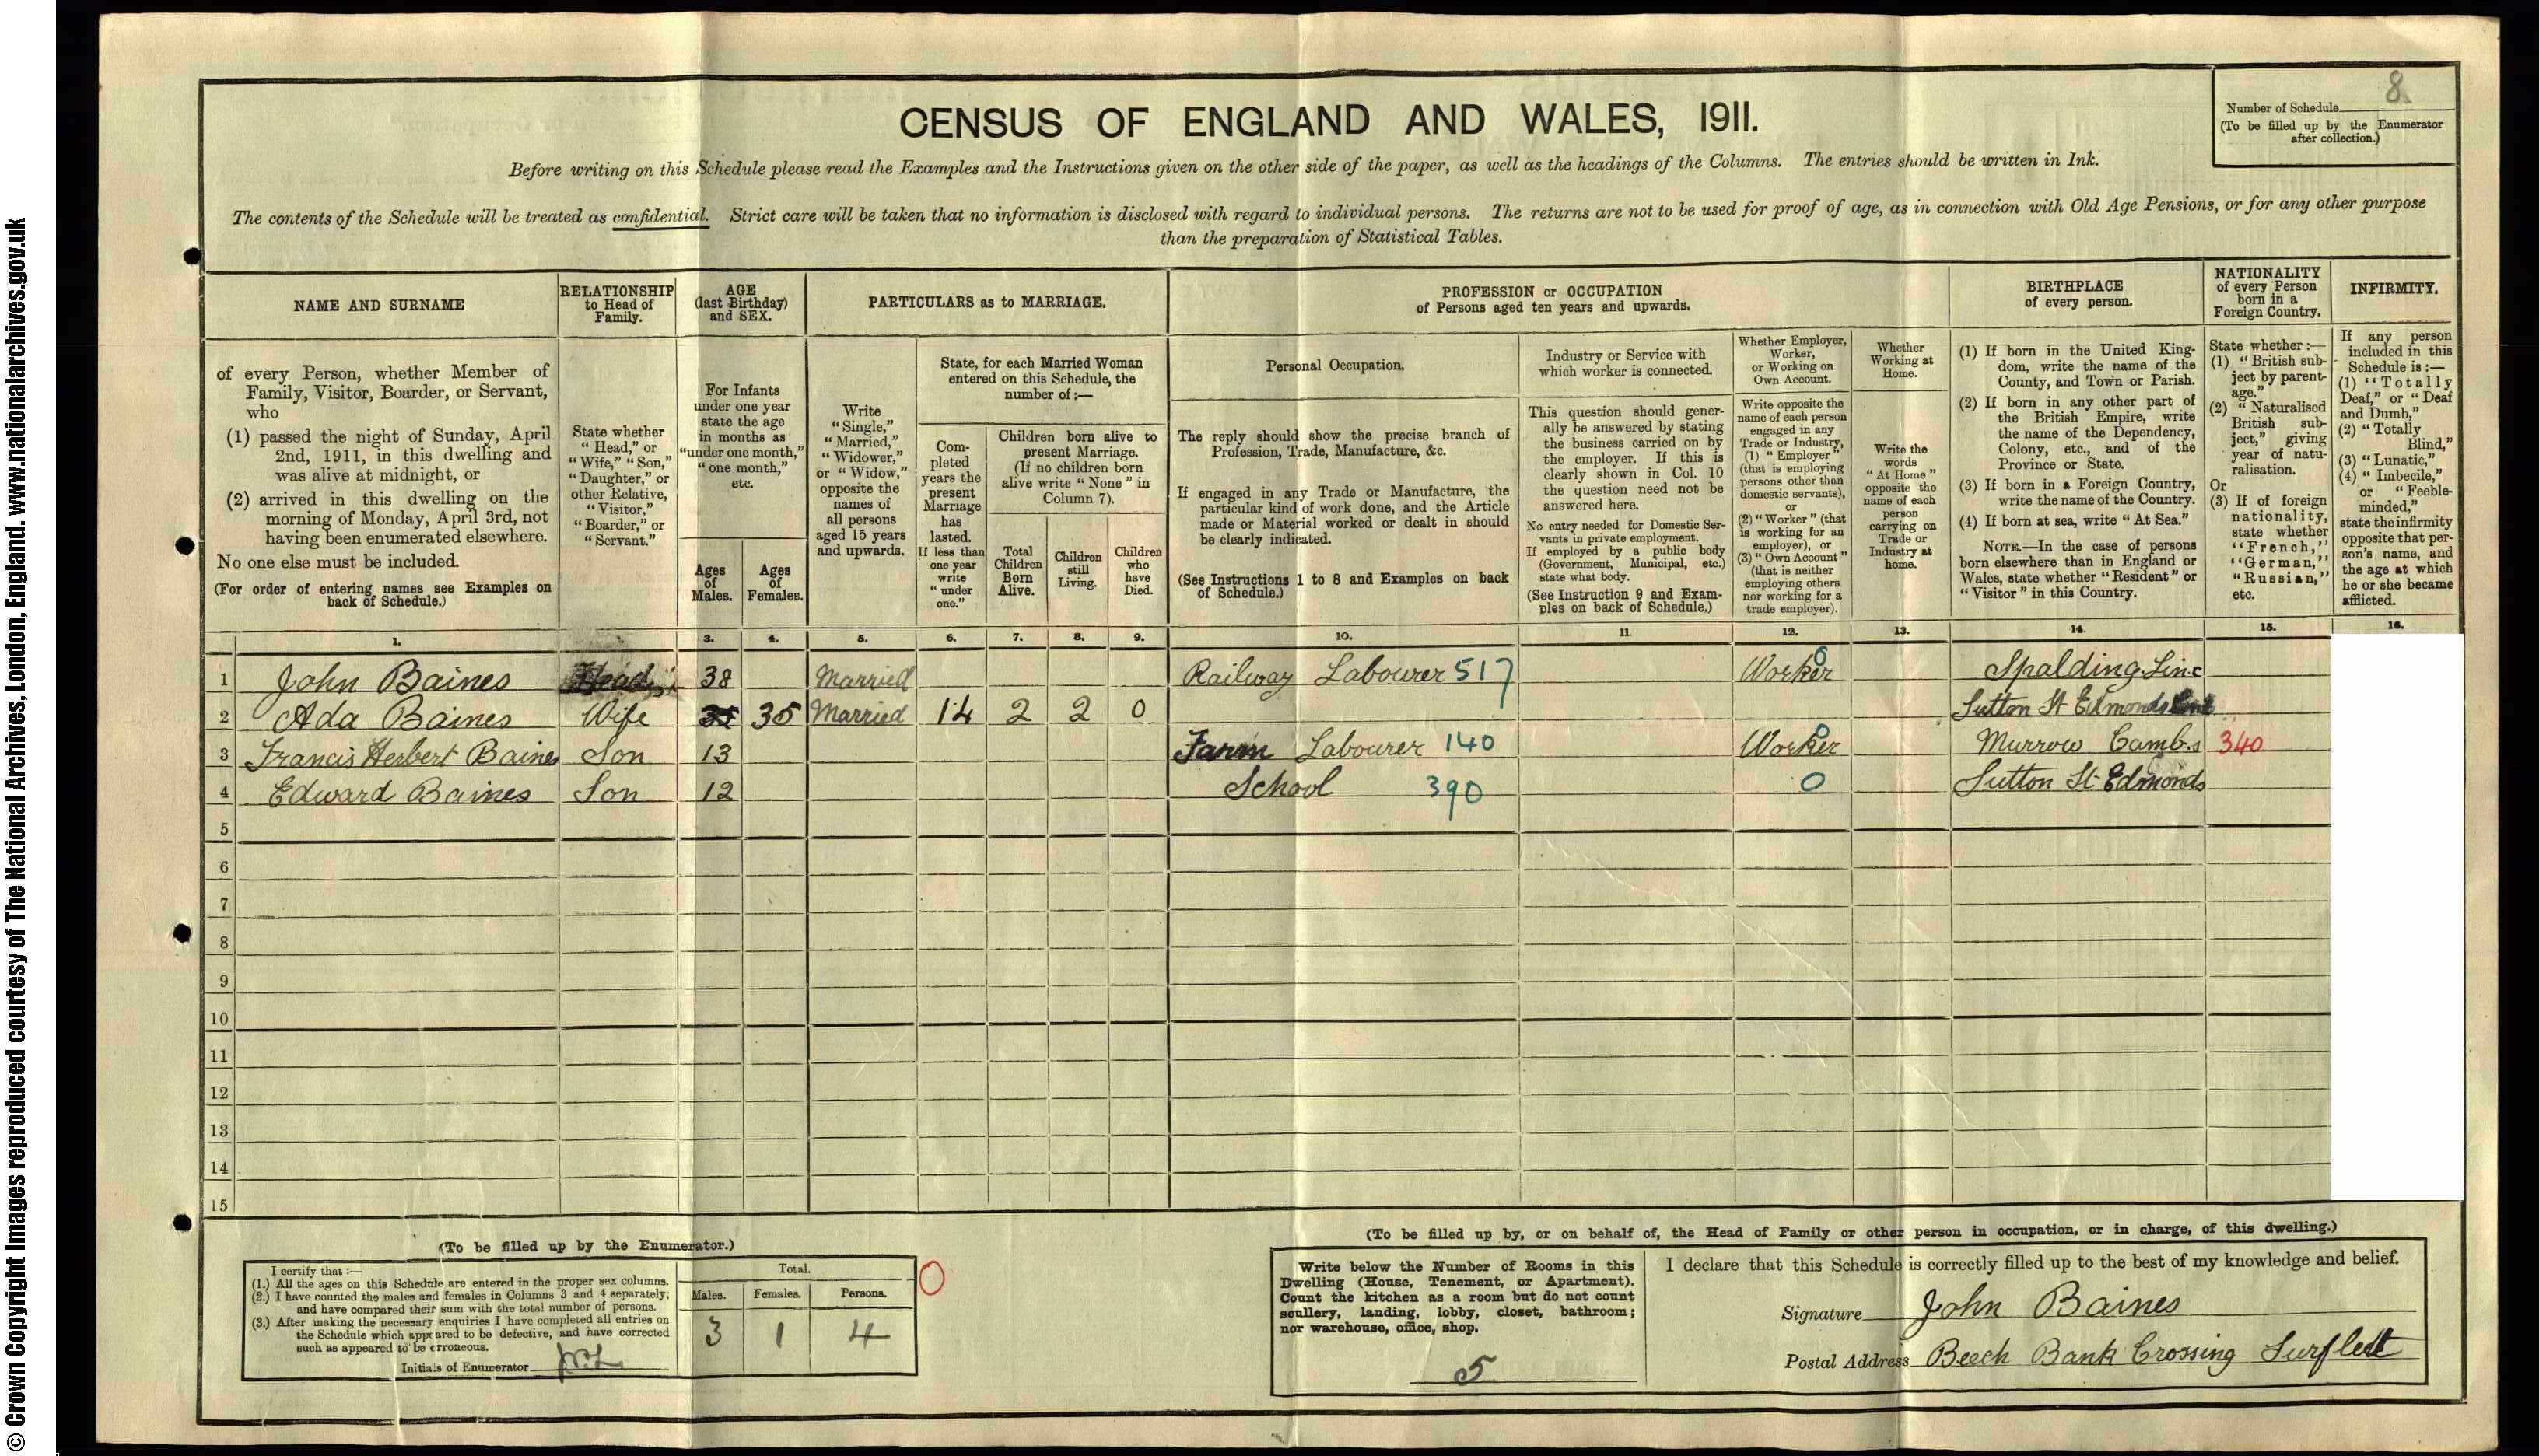 © Crown Copyright Images reproduced courtesy of The National Archives, London, England. www.nationalarchives.gov.uk
CENSUS OF ENGLAND AND WALES, 1911.
8
Number of Schedule
(To be filled up by the Enumerator
after collection.)
Before writing on this Schedule please read the Examples and the Instructions given on the other side of the paper, as well as the headings of the Columns. The entries should be written in Ink.
The contents of the Schedule will be treated as confidential. Strict care will be taken that no information is disclosed with regard to individual persons. The returns are not to be used for proof of age, as in connection with Old Age Pensions, or for any other purpose
than the preparation of Statistical Tables.
NAME AND SURNAME
of every Person, whether Member of
Family, Visitor, Boarder, or Servant,
who
(1) passed the night of Sunday, April
2nd, 1911, in this dwelling and
was alive at midnight, or
(2) arrived in this dwelling on the
morning of Monday, April 3rd, not
having been enumerated elsewhere.
No one else must be included.
(For order of entering names see Examples on
back of Schedule.)
RELATIONSHIP
to Head of
Family.
State whether
"Head," or
"Wife," "Son,"
"Daughter," or
other Relative,
"Visitor,"
"Boarder," or
"Servant."
AGE
(last Birthday)
and SEX.
For Infants
under one year
state the age
in months as
"under one month,"
"one month,"
etc.
Ages
of
Males.
Ages
of
Females.
PARTICULARS as to MARRIAGE.
Write
"Single,"
"Married,"
"Widower,"
or "Widow,"
opposite the
names of
all persons
aged 15 years
and upwards.
State, for each Married Woman
entered on this Schedule, the
number of:—
Com-
pleted
years the
present
Marriage
has
lasted.
If less than
one year
write
"under
one."
Children born alive to
present Marriage.
(If no children born
alive write "None" in
Column 7).
Total
Children
Born
Alive.
Children
still
Living.
Children
who
have
Died.
PROFESSION or OCCUPATION
of Persons aged ten years and upwards.
Personal Occupation.
The reply should show the precise branch of
Profession, Trade, Manufacture, &c.
If engaged in any Trade or Manufacture, the
particular kind of work done, and the Article
made or Material worked or dealt in should
be clearly indicated.
(See Instructions 1 to 8 and Examples on back
of Schedule.)
Industry or Service with
which worker is connected.
This question should gener-
ally be answered by stating
the business carried on by
the employer. If this is
clearly shown in Col. 10
the question need not be
answered here.
No entry needed for Domestic Ser-
vants in private employment.
If employed by a public body
(Government, Municipal, etc.)
state what body.
(See Instruction 9 and Exam-
ples on back of Schedule.)
Whether Employer,
Worker,
or Working on
Own Account.
Write opposite the
name of each person
engaged in any
Trade or Industry,
(1) "Employer"
(that is employing
persons other than
domestic servants),
or
(2) "Worker" (that
is working for an
employer), or
(3) "Own Account"
(that is neither
employing others
nor working for a
trade employer).
Whether
Working at
Home.
Write the
words
"At Home"
opposite the
name of each
person
carrying on
Trade or
Industry at
home.
BIRTHPLACE
of every person.
(1) If born in the United King-
dom, write the name of the
County, and Town or Parish.
(2) If born in any other part of
the British Empire, write
the name of the Dependency,
Colony, etc., and of the
Province or State.
(3) If born in a Foreign Country,
write the name of the Country.
(4) If born at sea, write "At Sea."
NOTE.—In the case of persons
born elsewhere than in England or
Wales, state whether "Resident" or
"Visitor" in this Country.
NATIONALITY
of every Person
born in a
Foreign Country.
State whether :—
(1) "British sub-
ject by parent-
age."
(2) "Naturalised
British sub-
ject," giving
year of natu-
ralisation.
Or
(3) If of foreign
nationality,
state whether
"French,"
"German,"
"Russian,"
etc.
INFIRMITY.
If any person
included in this
Schedule is :—
(1) "Totally
Deaf," or "Deaf
and Dumb,"
(2) "Totally
Blind,"
(3) "Lunatic,"
(4) "Imbecile,"
or "Feeble-
minded,"
state the infirmity
opposite that per-
son's name, and
the age at which
he or she became
afflicted.
1. 3. 4. 5. 6. 7. 8. 9. 10. 11. 12. 13. 14. 15. 16.
1 John Baines Head 38 Married Railway Labourer 517 Worker 0 Spalding Linc
2 Ada Baines Wife 35 Married 14 2 2 0 Sutton St Edmonds
3 Francis Herbert Baines Son 13 Farm Labourer 140 Worker 0 Murrow Cambs 340
4 Edward Baines Son 12 School 390 0 Sutton St Edmonds
5
6
7
8
9
10
11
12
13
14
15
(To be filled up by the Enumerator.)
I certify that :—
(1.) All the ages on this Schedule are entered in the proper sex columns.
(2.) I have counted the males and females in Columns 3 and 4 separately,
and have compared their sum with the total number of persons.
(3.) After making the necessary enquiries I have completed all entries on
the Schedule which appeared to be defective, and have corrected
such as appeared to be erroneous.
Initials of Enumerator
Total.
Males. Females. Persons.
3 1 4
0
(To be filled up by, or on behalf of, the Head of Family or other person in occupation, or in charge, of this dwelling.)
Write below the Number of Rooms in this
Dwelling (House, Tenement, or Apartment).
Count the kitchen as a room but do not count
scullery, landing, lobby, closet, bathroom;
nor warehouse, office, shop.
5
I declare that this Schedule is correctly filled up to the best of my knowledge and belief.
Signature John Baines
Postal Address Beech Bank Crossing Surfleet